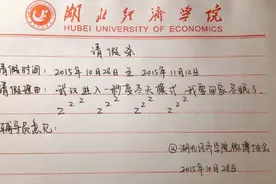 湖北经济学院
HUBEI UNIVERSITY OF ECONOMICS
请假条
请假时间：2015年10月28日至2015年11月12日
请假理由：武汉进入一秒变冬天模式，我要回家冬眠了，
Z Z Z Z Z Z Z Z Z Z
辅导员意见：
@湖北经济学院微博协会
2015年10月28日